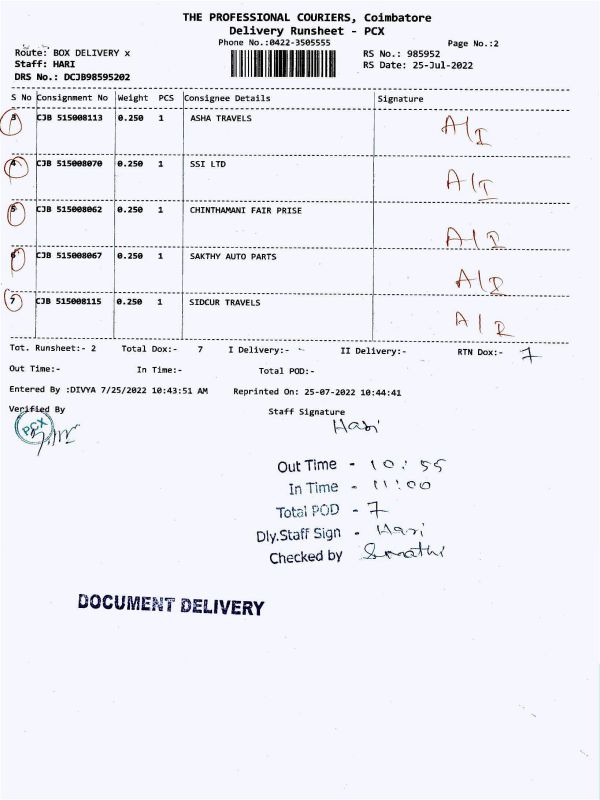 THE PROFESSIONAL COURIERS, Coimbatore
Delivery Runsheet - PCX
Phone No.:0422-3505555 Page No.:2
Route: BOX DELIVERY x RS No.: 985952
Staff: HARI RS Date: 25-Jul-2022
DRS No.: DCJB98595202
S No Consignment No Weight PCS Consignee Details Signature
3 CJB 515008113 0.250 1 ASHA TRAVELS A/I
4 CJB 515008070 0.250 1 SSI LTD A/I
5 CJB 515008062 0.250 1 CHINTHAMANI FAIR PRISE A/R
6 CJB 515008067 0.250 1 SAKTHY AUTO PARTS A/R
7 CJB 515008115 0.250 1 SIDCUR TRAVELS A/R
Tot. Runsheet:- 2 Total Dox:- 7 I Delivery:- - II Delivery:- RTN Dox:- 7
Out Time:- In Time:- Total POD:-
Entered By :DIVYA 7/25/2022 10:43:51 AM Reprinted On: 25-07-2022 10:44:41
Verified By Staff Signature
PCX Hari
Out Time - 10:55
In Time - 11:00
Total POD - 7
Dly.Staff Sign - Hari
Checked by
DOCUMENT DELIVERY